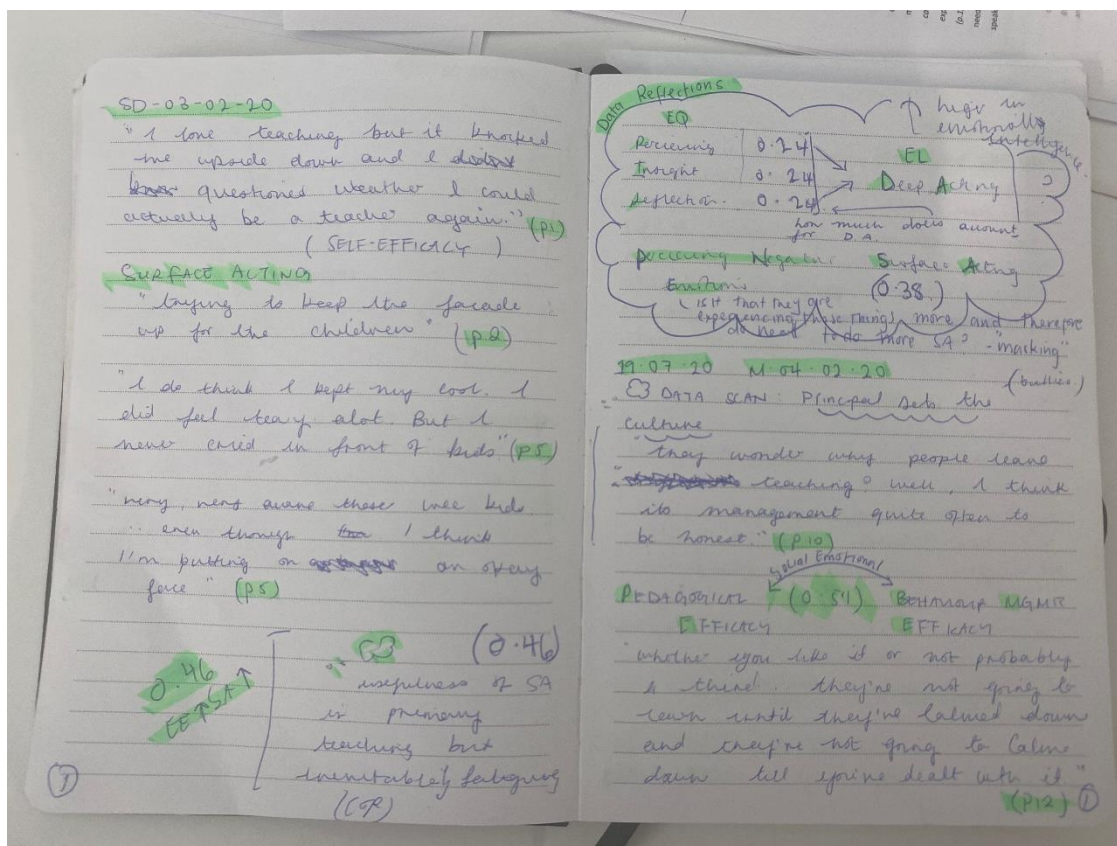 SD-03-02-20
"I love teaching but it knocked
me upside down and I
questioned weather I could
actually be a teacher again." (p1)
(SELF-EFFICACY)
SURFACE ACTING
"trying to keep the facade
up for the children" (p2)
"I do think I kept my cool. I
did feel teary alot. But I
never cried in front of kids" (p5)
"very, very aware these wee kids
... even though I think
I'm putting on an okay
face" (p5)
(0.46)
usefulness of SA
in primary
teaching but
inevitabley fatiguing
0.46
EE↑SA↑
1
Data Reflections
EQ
Percieving 0.24
Insight 0.24
Reflection. 0.24
EL
Deep Acting
↑ high in
emotionally
Intelligence.
how much does account
for D.A.
percieving Negative Surface Acting
Emotions (0.38)
is it that they are
experiencing these things more and therefore
do need to do more SA? - "masking"
(bullies)
19.07.20 M.04.02.20
DATA SCAN: Principal sets the
culture
"they wonder why people leave
teaching? well, I think
its management quite often to
be honest." (p10)
Social Emotional
PEDAGOGICAL (0.54) BEHAVIOUR MGMT
EFFICACY EFFICACY
"whether you like it or not probably
I think.. they're not going to
learn until they've calmed down
and they're not going to calm
down till you've dealt with it"
(p12) 1